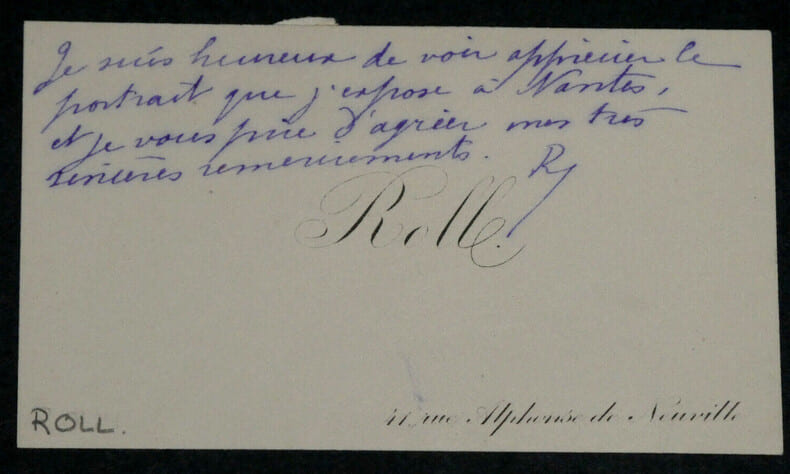 Je suis heureux de voir apprécier le
portrait que j'expose à Nantes,
et je vous prie d'agréer mes très
sincères remerciements. R
Roll.
41, rue Alphonse de Neuville
ROLL.